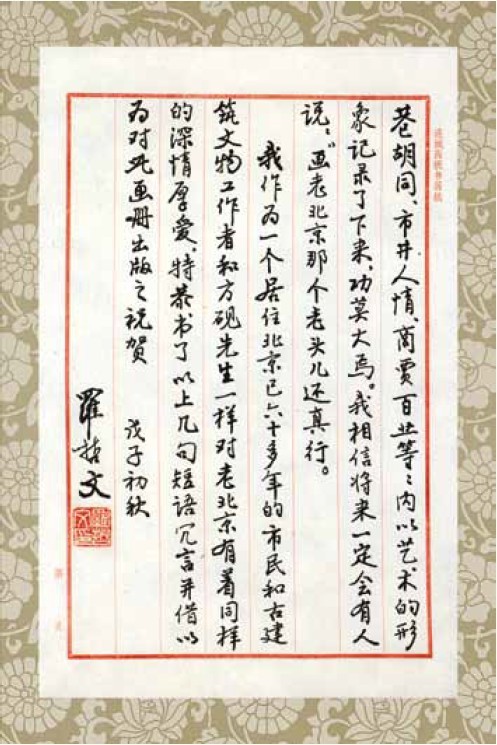 巷胡同、市井人情、商贾百业等々内以艺术的形
象记录了下来，功莫大焉。我相信将来一定会有人
说：“画老北京那个老头儿还真行。
我作为一个居住北京已六十多年的市民和古建
筑文物工作者和方砚先生一样对老北京有着同样
的深情厚爱，特恭书了以上几句短语冗言并借以
为对此画册出版之祝贺
戊子初秋
罗哲文